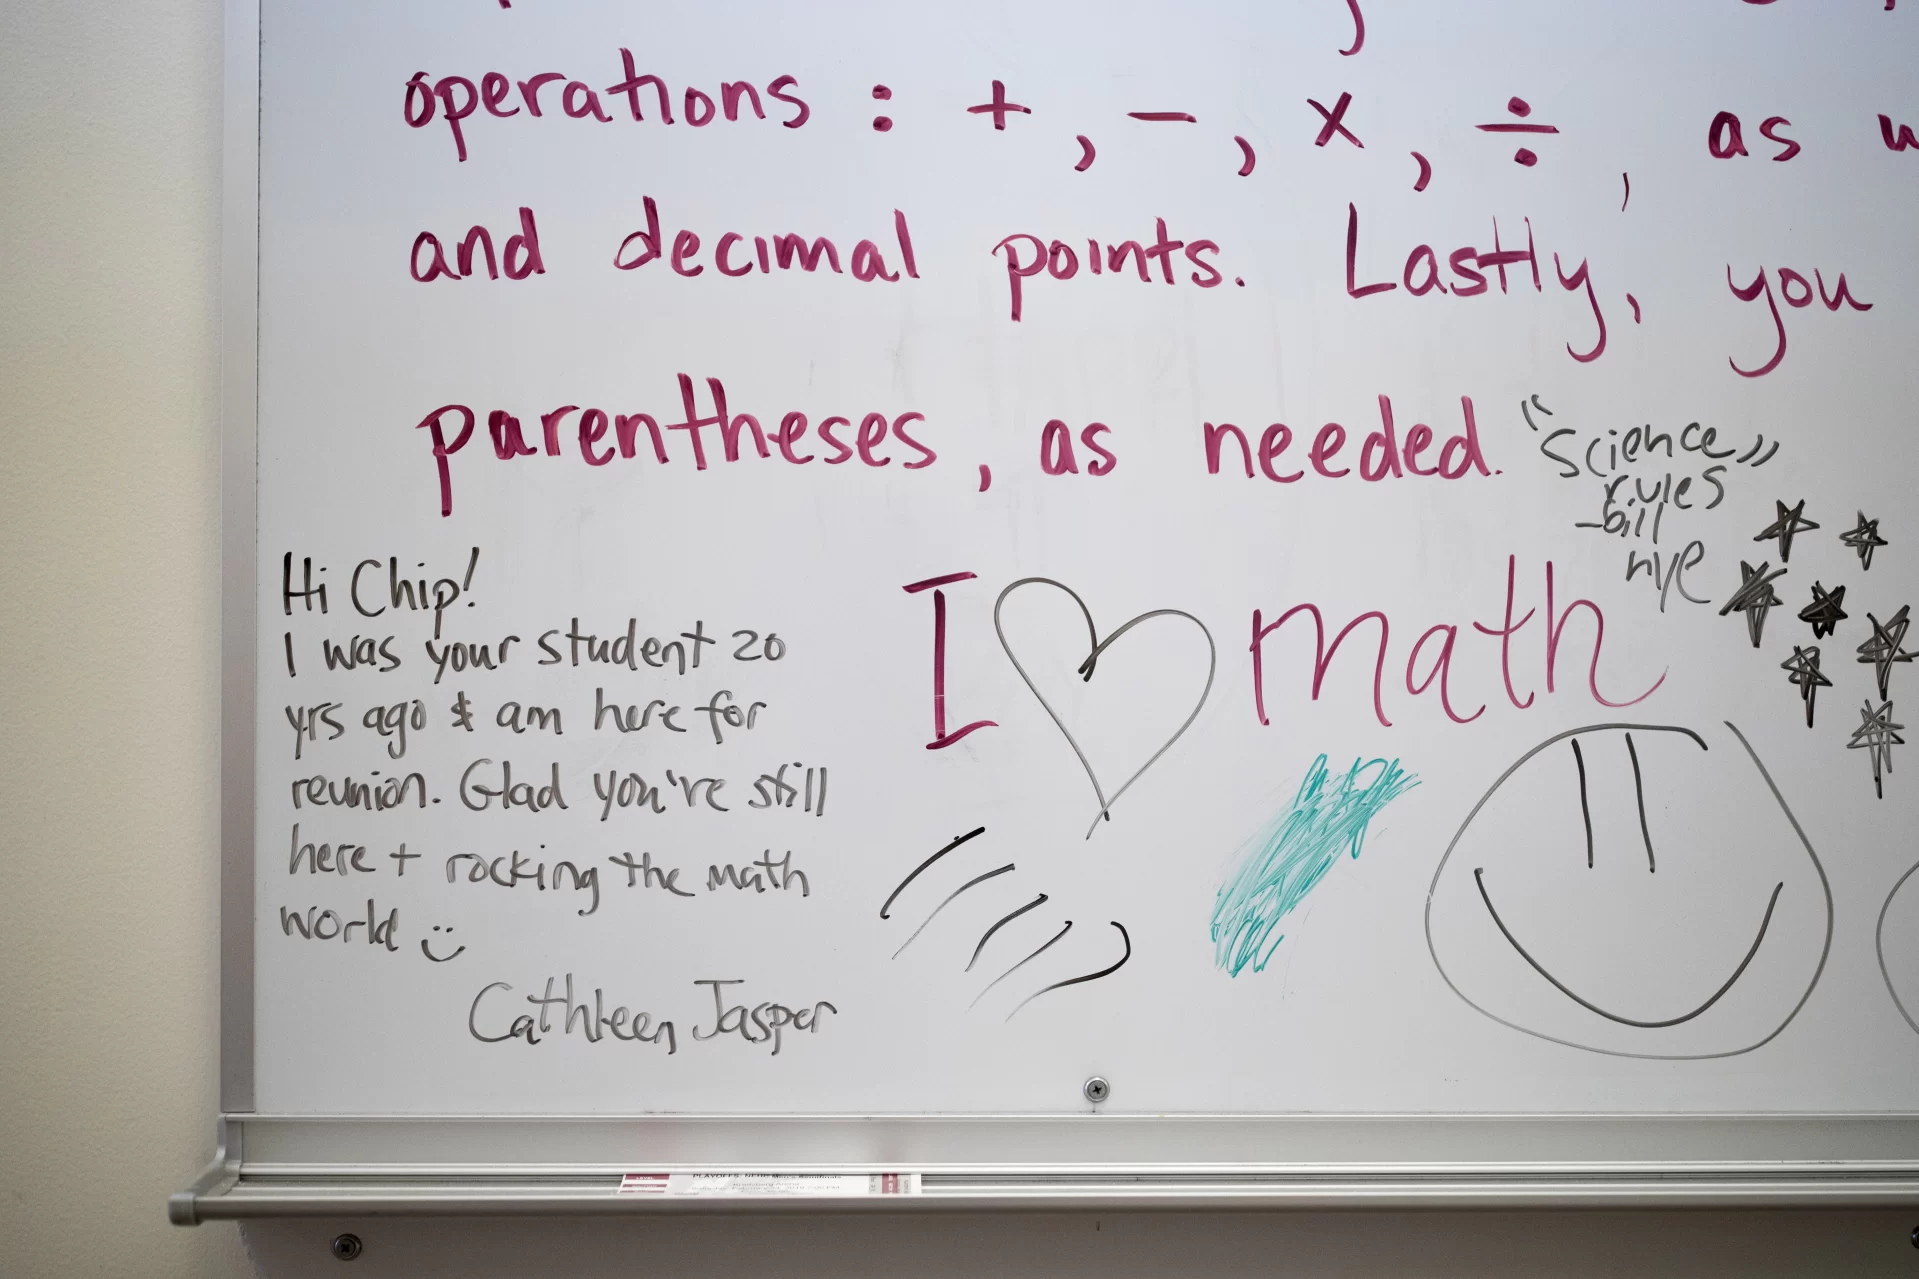 operations : + , − , x , ÷ , as
and decimal points. Lastly, you
parentheses, as needed.
"Science"
rules
-bill
nye
Hi Chip!
I was your student 20
yrs ago & am here for
reunion. Glad you're still
here + rocking the math
world
Cathleen Jasper
I ♡ math